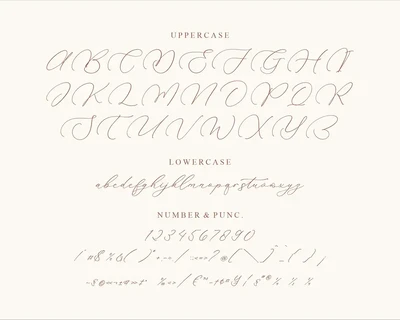 UPPERCASE
A B C D E F G H I
J K L M N O P Q R
S T U V W X Y Z
LOWERCASE
abcdefghijklmnopqrstuvwxyz
NUMBER & PUNC.
1234567890